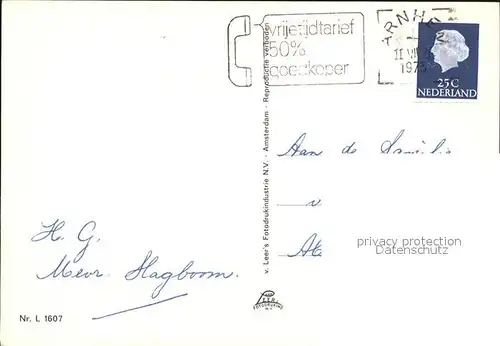 vrijetijdtarief
50%
goedkoper
ARNHEM
1973
25C
NEDERLAND
v. Leer's Fotodrukindustrie N.V. - Amsterdam - Reproductie verboden
Aan de Familie
v
privacy protection
Datenschutz
H. G.
Mevr. Hagboom.
Nr. L 1607